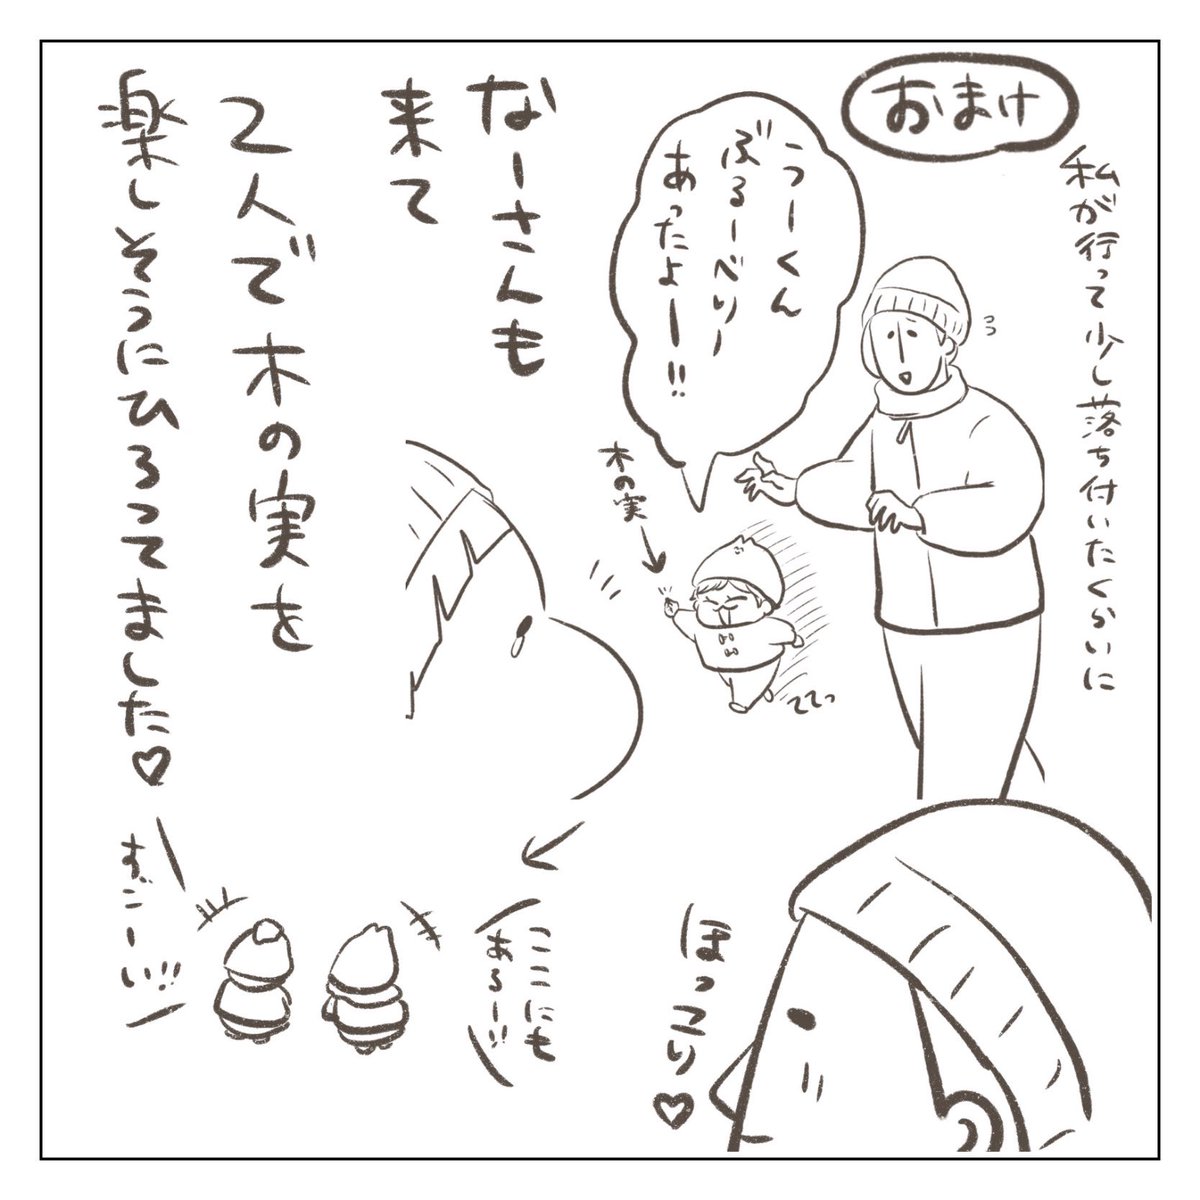 おまけ
私が行って少し落ち付いたくらいに
うーくん
ぶるーべりー
あったよー!!
木の実
ててっ
なーさんも
来て
2人で木の実を
楽しそうにひろってました♡
ほっこり♡
ここにも
あるー!!
すごーい!!